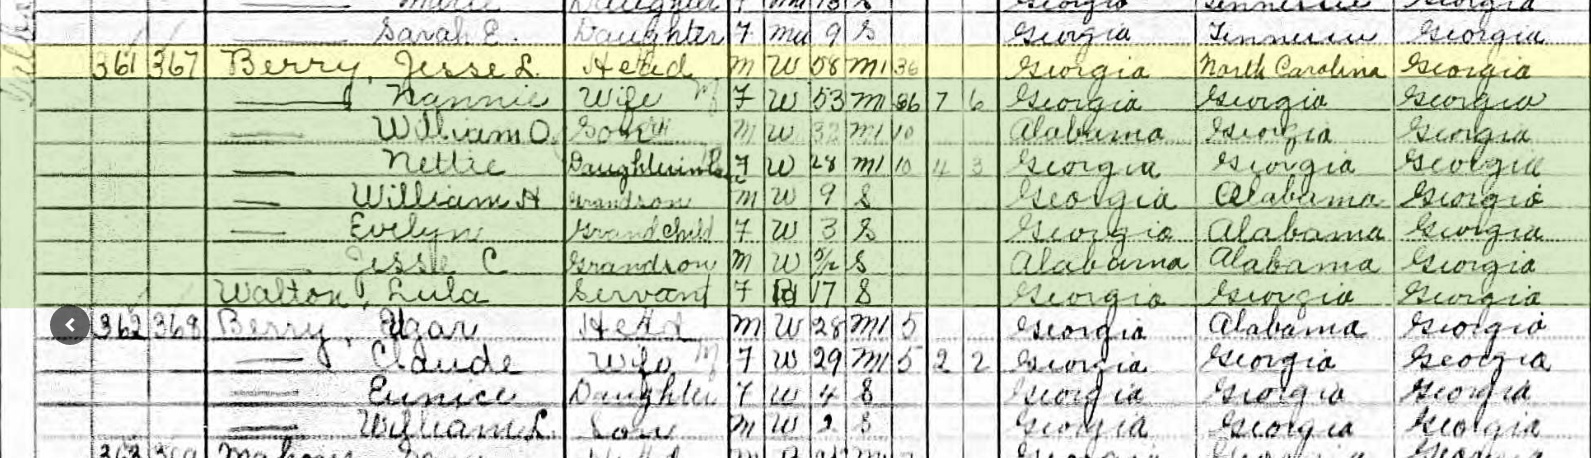 Marie Daughter F Mu 13 S Georgia Tennessee Georgia
Sarah E. Daughter F Mu 9 S Georgia Tennessee Georgia
361 367 Berry, Jesse L. Head M W 58 M1 36 Georgia North Carolina Georgia
Nannie Wife F W 53 M1 36 7 6 Georgia Georgia Georgia
William O. Son M W 32 M1 10 Alabama Georgia Georgia
Nettie Daughterinlaw F W 28 M1 10 4 3 Georgia Georgia Georgia
William H Grandson M W 9 S Georgia Alabama Georgia
Evelyn Grandchild F W 3 S Georgia Alabama Georgia
Jesse C Grandson M W S Alabama Alabama Georgia
Walton, Lula Servant F 17 S Georgia Georgia Georgia
362 368 Berry, Head M W 28 M1 5 Georgia Alabama Georgia
Claude Wife F W 29 M1 5 2 2 Georgia Georgia Georgia
Eunice Daughter F W 4 S Georgia Georgia Georgia
William L. Son M W 2 S Georgia Georgia Georgia
363